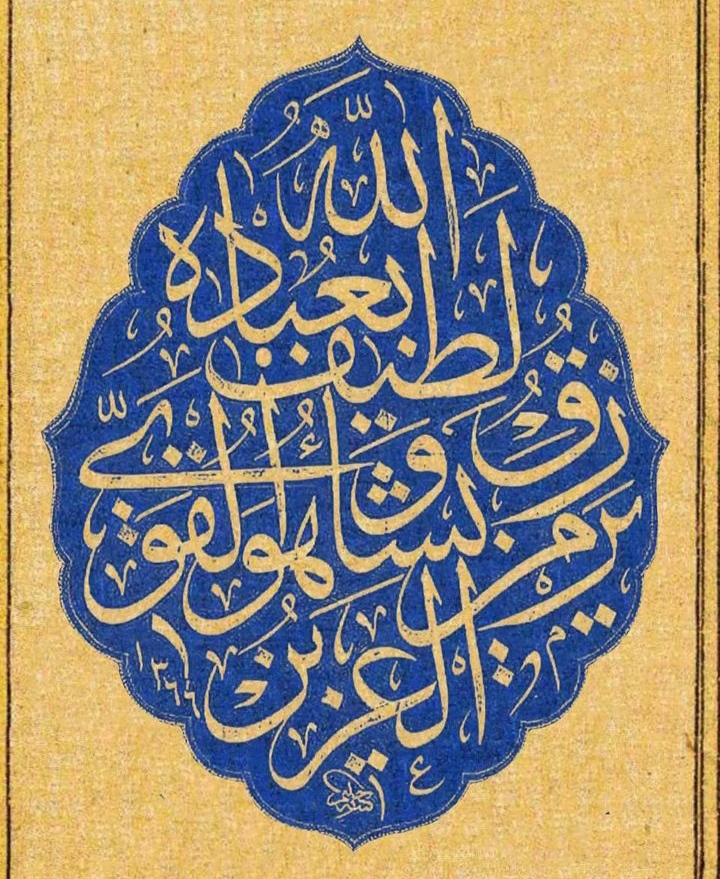 الله
لطيف بعباده
يرزق من يشاء وهو القوي
العزيز
١٣٦٤
كتبه حليم